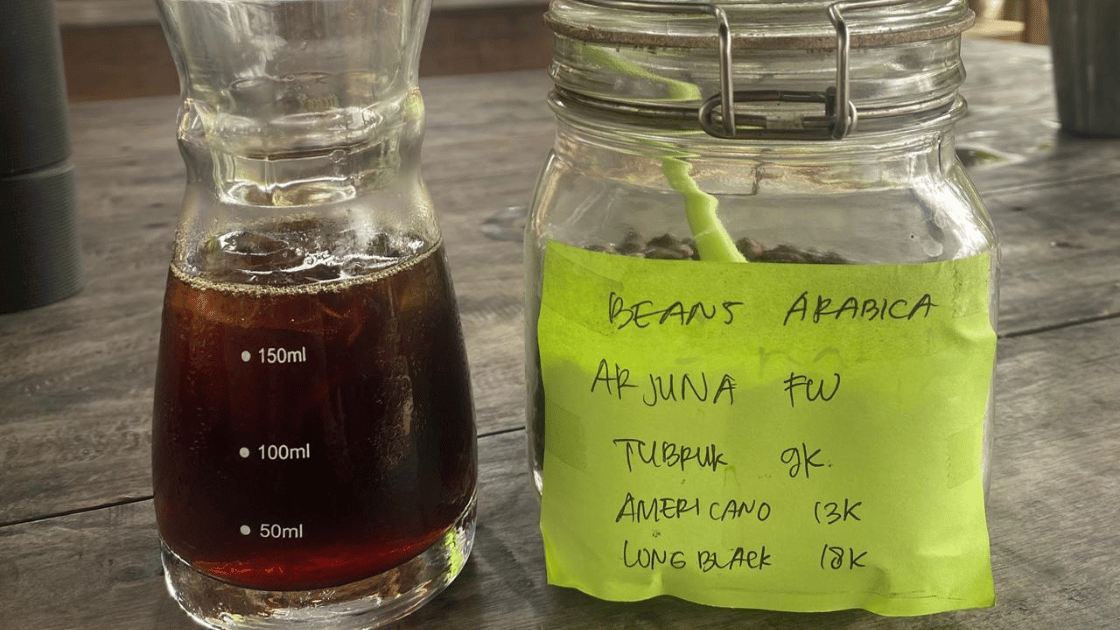 150ml
100ml
50ml
BEANS ARABICA
ARJUNA FW
TUBRUK 9K.
AMERICANO 13K
LONG BLACK 18K